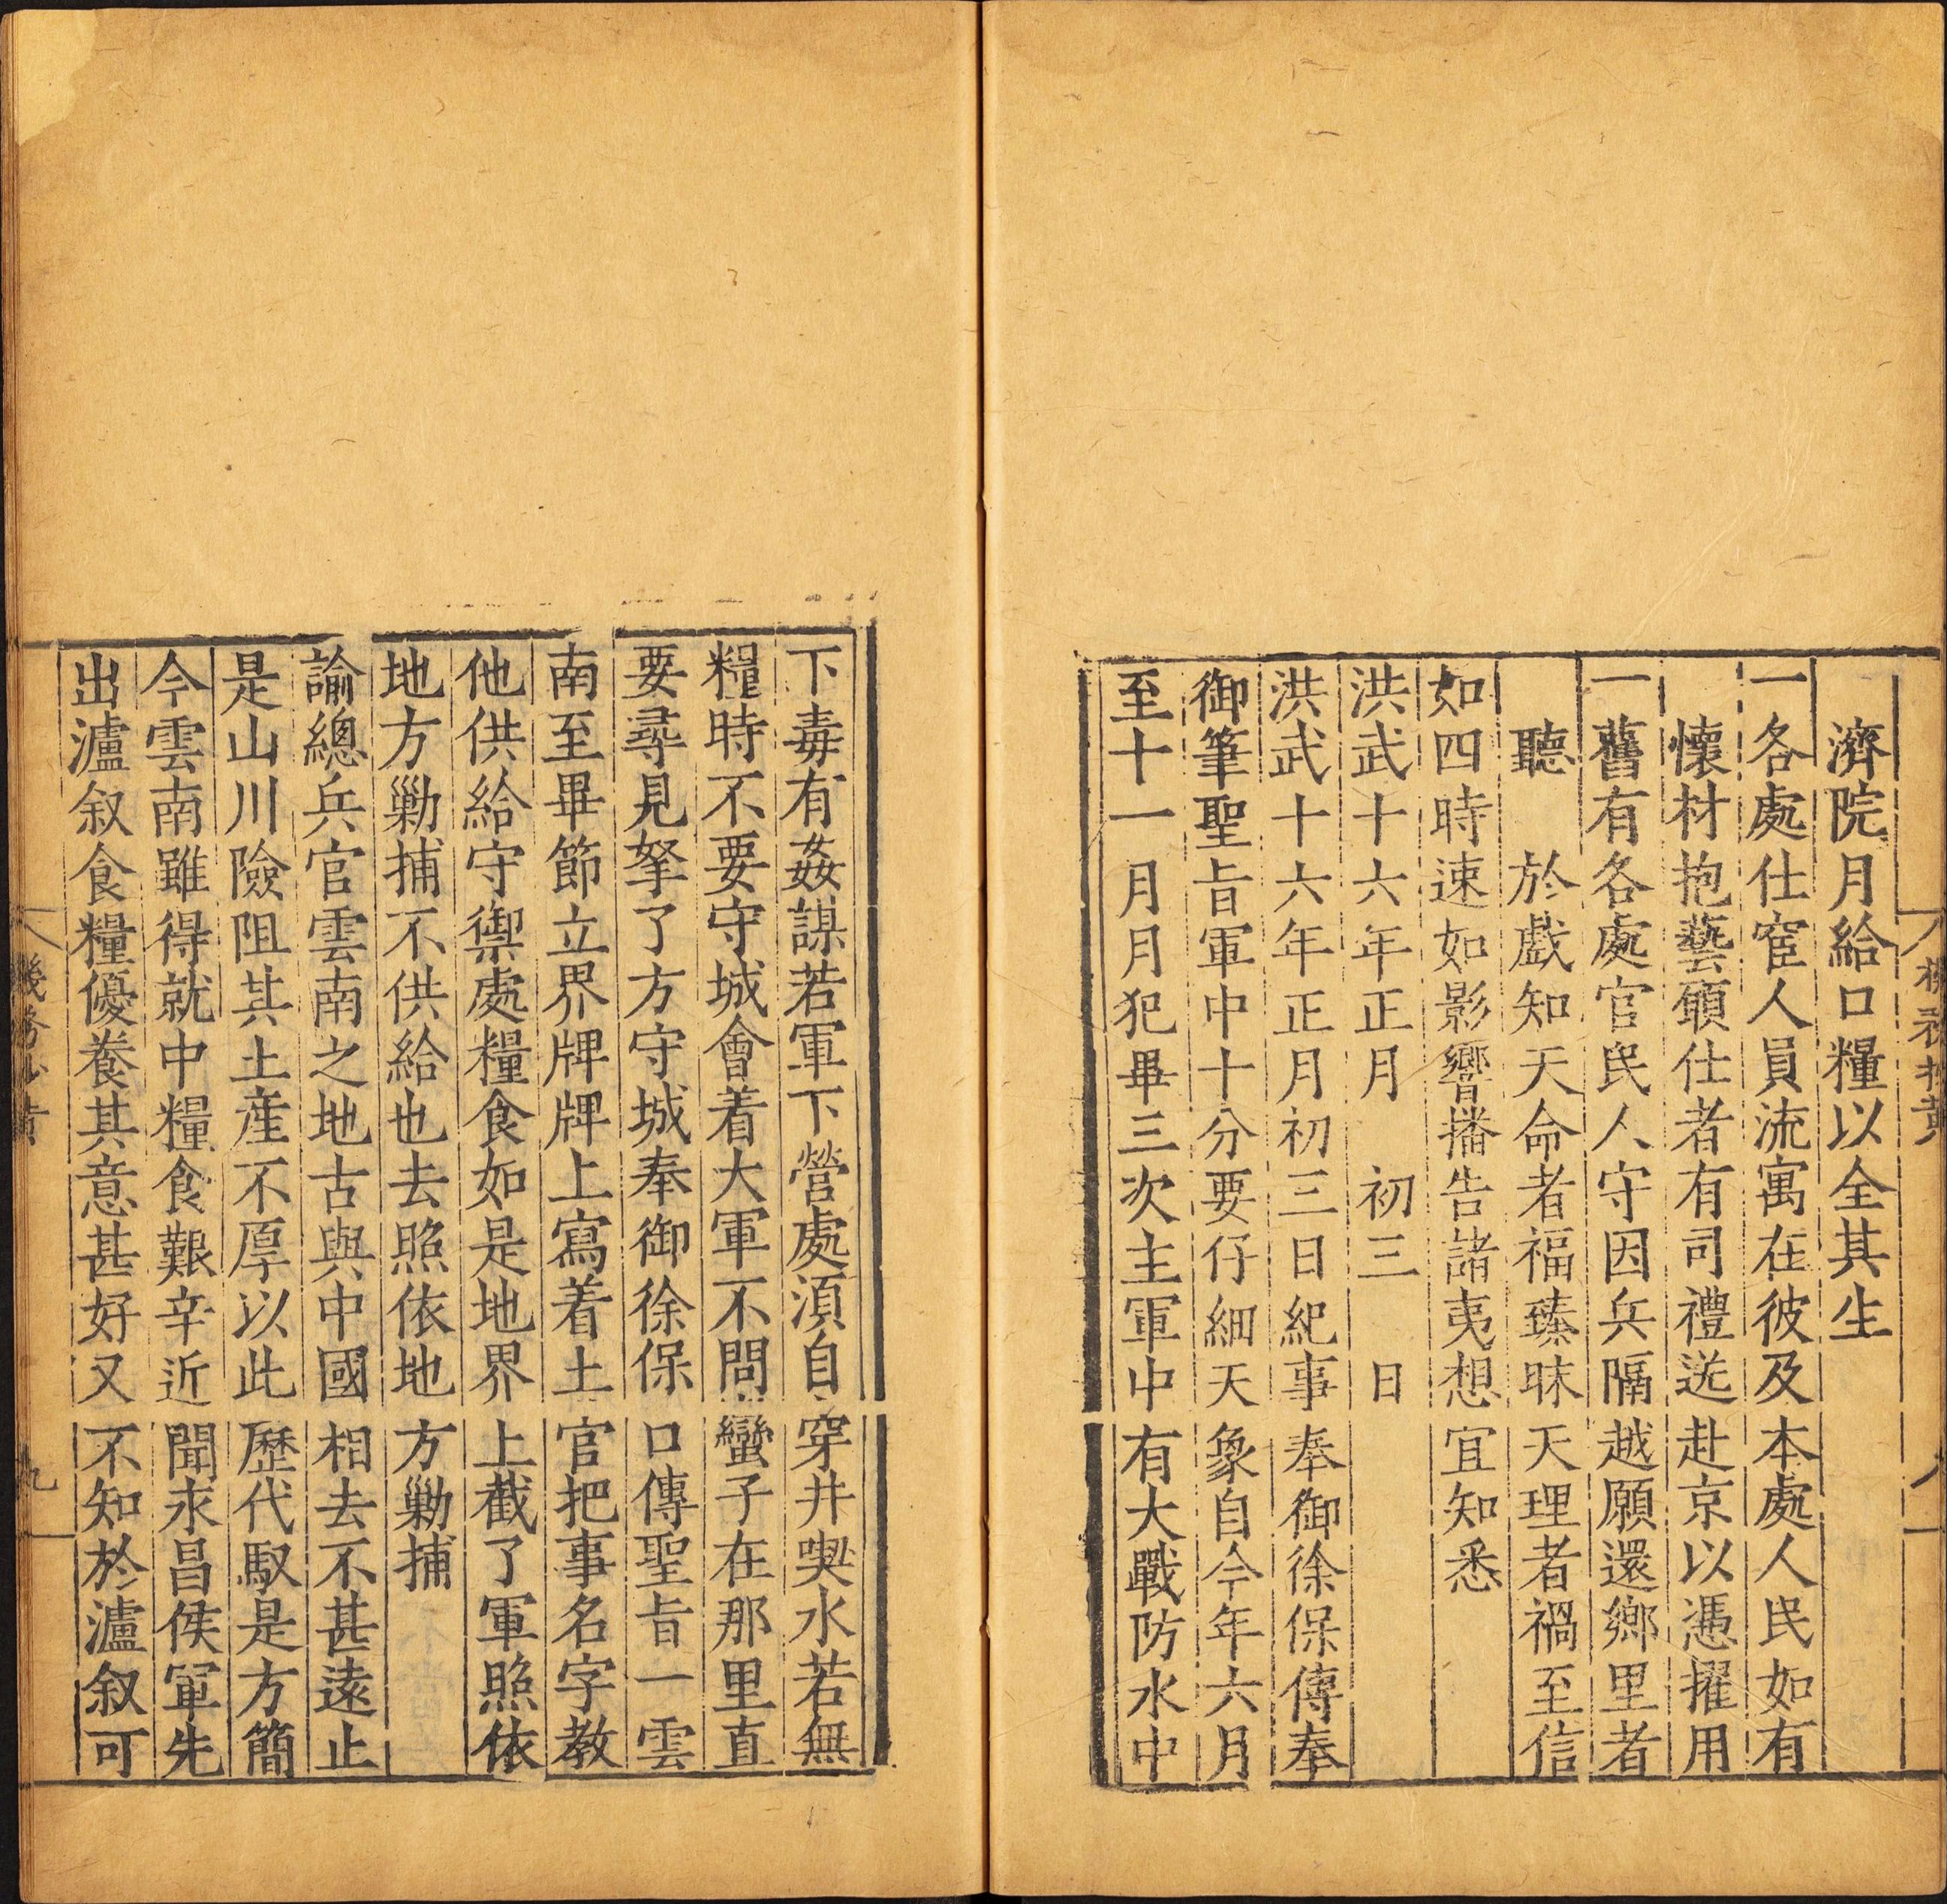 濟院月給口糧以全其生
一各處仕宦人員流寓在彼及本處人民如有
懷材抱藝願仕者有司禮送赴京以憑擢用
一舊有各處官民人守因兵隔越願還鄉里者
聽 於戲知天命者福臻昧天理者禍至信
如四時速如影響播告諸夷想宜知悉
洪武十六年正月 初三 日
洪武十六年正月初三日紀事奉御徐保傳奉
御筆聖旨軍中十分要仔細天象自今年六月
至十一月月犯畢三次主軍中有大戰防水中
下毒有姦謀若軍下營處湏自穿井喫水若無
糧時不要守城會着大軍不問蠻子在那里直
要尋見拏了方守城奉御徐保口傳聖旨一雲
南至畢節立界牌牌上寫着土官把事名字教
他供給守禦處糧食如是地界上截了軍照依
地方勦捕不供給也去照依地方勦捕
諭總兵官雲南之地古與中國相去不甚遠止
是山川險阻其土產不厚以此歷代馭是方簡
今雲南雖得就中糧食艱辛近聞永昌侯軍先
出瀘叙食糧優養其意甚好又不知於瀘叙可
九